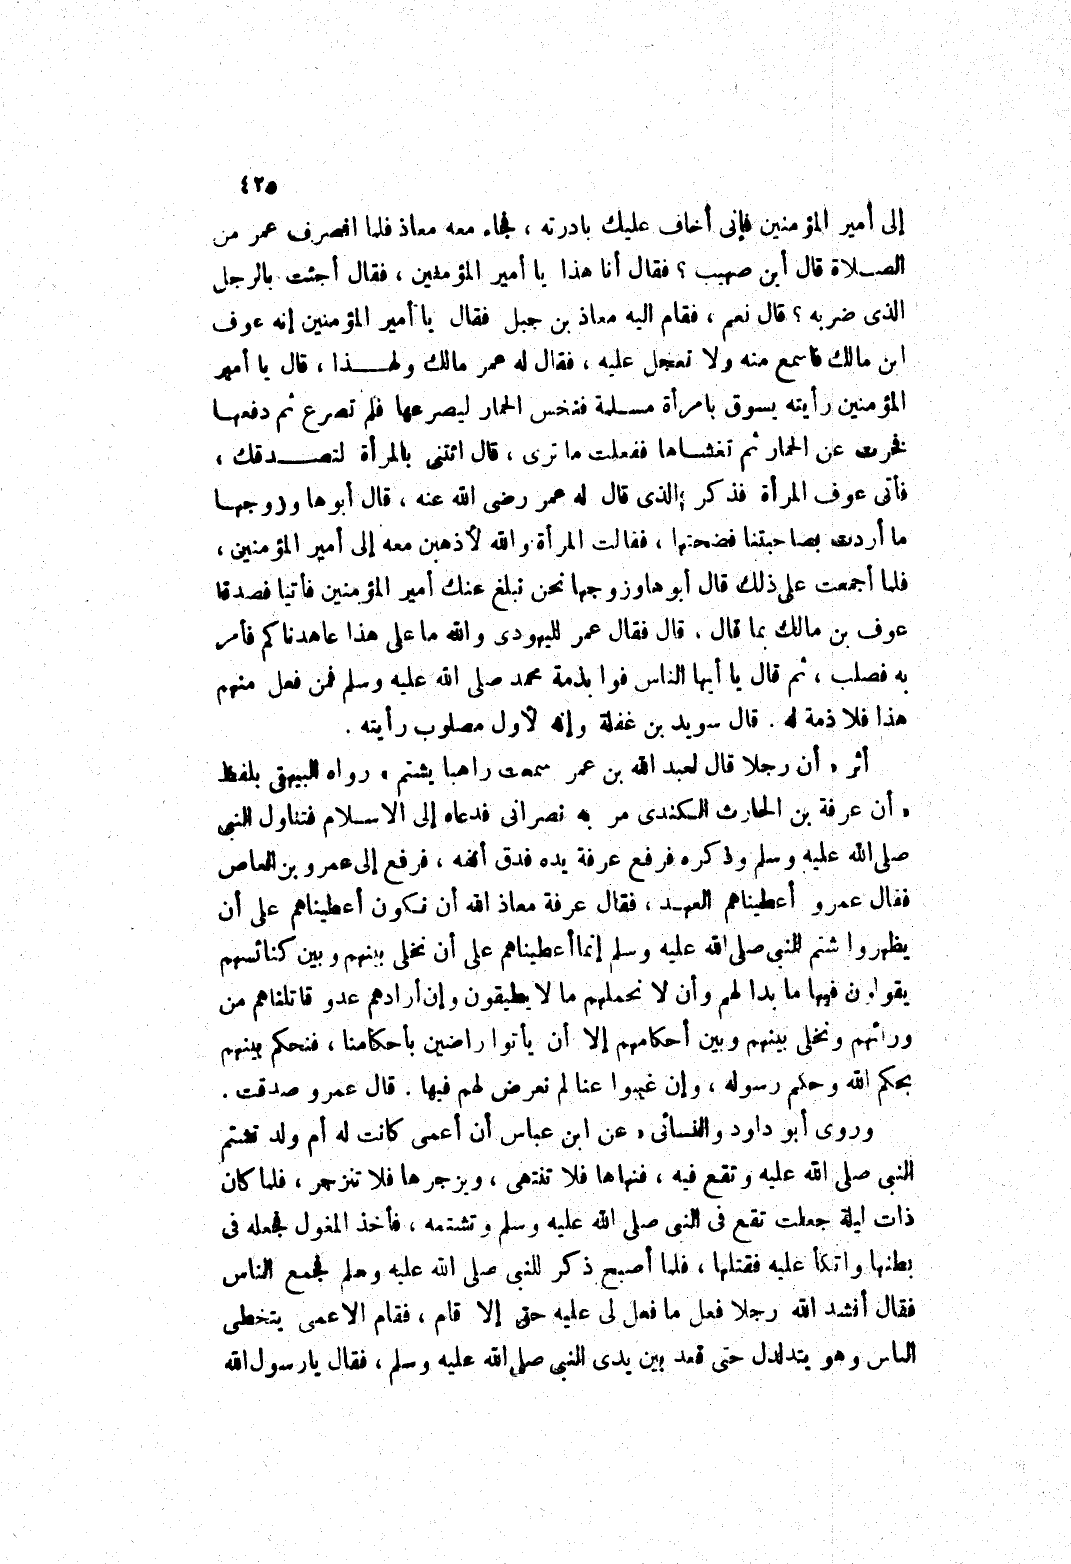 ٤٢٥
إلى أمير المؤمنين فإنى أخاف عليك بادرته ، فجاء معه معاذ فلما انصرف عمر من
الصلاة قال أين صهيب ؟ فقال أنا هذا يا أمير المؤمنين ، فقال أجئت بالرجل
الذى ضربه ؟ قال نعم ، فقام اليه معاذ بن جبل فقال يا أمير المؤمنين إنه عوف
ابن مالك فاسمع منه ولا تعجل عليه ، فقال له عمر مالك ولهذا ، قال يا أمير
المؤمنين رأيته يسوق بامرأة مسلمة فنخس الحمار ليصرعها فلم تصرع ثم دفعها
فخرت عن الحمار ثم تغشاها ففعلت ما ترى ، قال ائتنى بالمرأة لتصدقك ،
فأتى عوف المرأة فذكر الذى قال له عمر رضى الله عنه ، قال أبوها وزوجها
ما أردت بصاحبتنا فضحتها ، فقالت المرأة والله لأذهبن معه إلى أمير المؤمنين ،
فلما أجمعت على ذلك قال أبوها وزوجها نحن نبلغ عنك أمير المؤمنين فأتيا فصدقا
عوف بن مالك بما قال ، قال فقال عمر لليهودى والله ما على هذا عاهدناكم فأمر
به فصلب ، ثم قال يا أيها الناس فوا بذمة محمد صلى الله عليه وسلم فمن فعل منهم
هذا فلا ذمة له . قال سويد بن غفلة وإنه لأول مصلوب رأيته .
أثر « أن رجلا قال لعبد الله بن عمر سمعت راهبا يشتم » رواه البيهقى بلفظ
« أن عرفة بن الحارث الكندى مر به نصرانى فدعاه إلى الاسلام فتناول النبى
صلى الله عليه وسلم وذكره فرفع عرفة يده فدق أنفه ، فرفع إلى عمرو بن العاص
فقال عمرو أعطيناهم العهد ، فقال عرفة معاذ الله أن نكون أعطيناهم على أن
يظهروا شتم النبى صلى الله عليه وسلم إنما أعطيناهم على أن نخلى بينهم وبين كنائسهم
يقولون فيها ما بدا لهم وأن لا نحملهم ما لا يطيقون وإن أرادهم عدو قاتلناهم من
ورائهم ونخلى بينهم وبين أحكامهم إلا أن يأتوا راضين بأحكامنا ، فنحكم بينهم
بحكم الله وحكم رسوله ، وإن غيبوا عنا لم نعرض لهم فيها . قال عمرو صدقت .
وروى أبو داود والنسائى « عن ابن عباس أن أعمى كانت له أم ولد تشتم
النبى صلى الله عليه وتقع فيه ، فنهاها فلا تنتهى ، ويزجرها فلا تنزجر ، فلما كان
ذات ليلة جعلت تقع فى النبى صلى الله عليه وسلم وتشتمه ، فأخذ المغول فجعله فى
بطنها واتكأ عليه فقتلها ، فلما أصبح ذكر للنبى صلى الله عليه وسلم فجمع الناس
فقال أنشد الله رجلا فعل ما فعل لى عليه حق إلا قام ، فقام الاعمى يتخطى
الناس وهو يتدلدل حتى قعد بين يدى النبى صلى الله عليه وسلم ، فقال يارسول الله